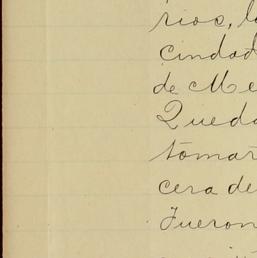 rios, l
cindad
de Me
Queda
tomar
cera de
Fueron